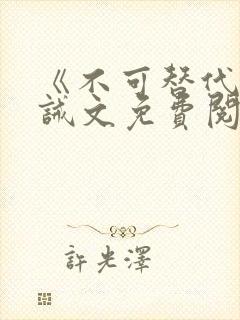 《不可替代
誡文免費閱
許光澤